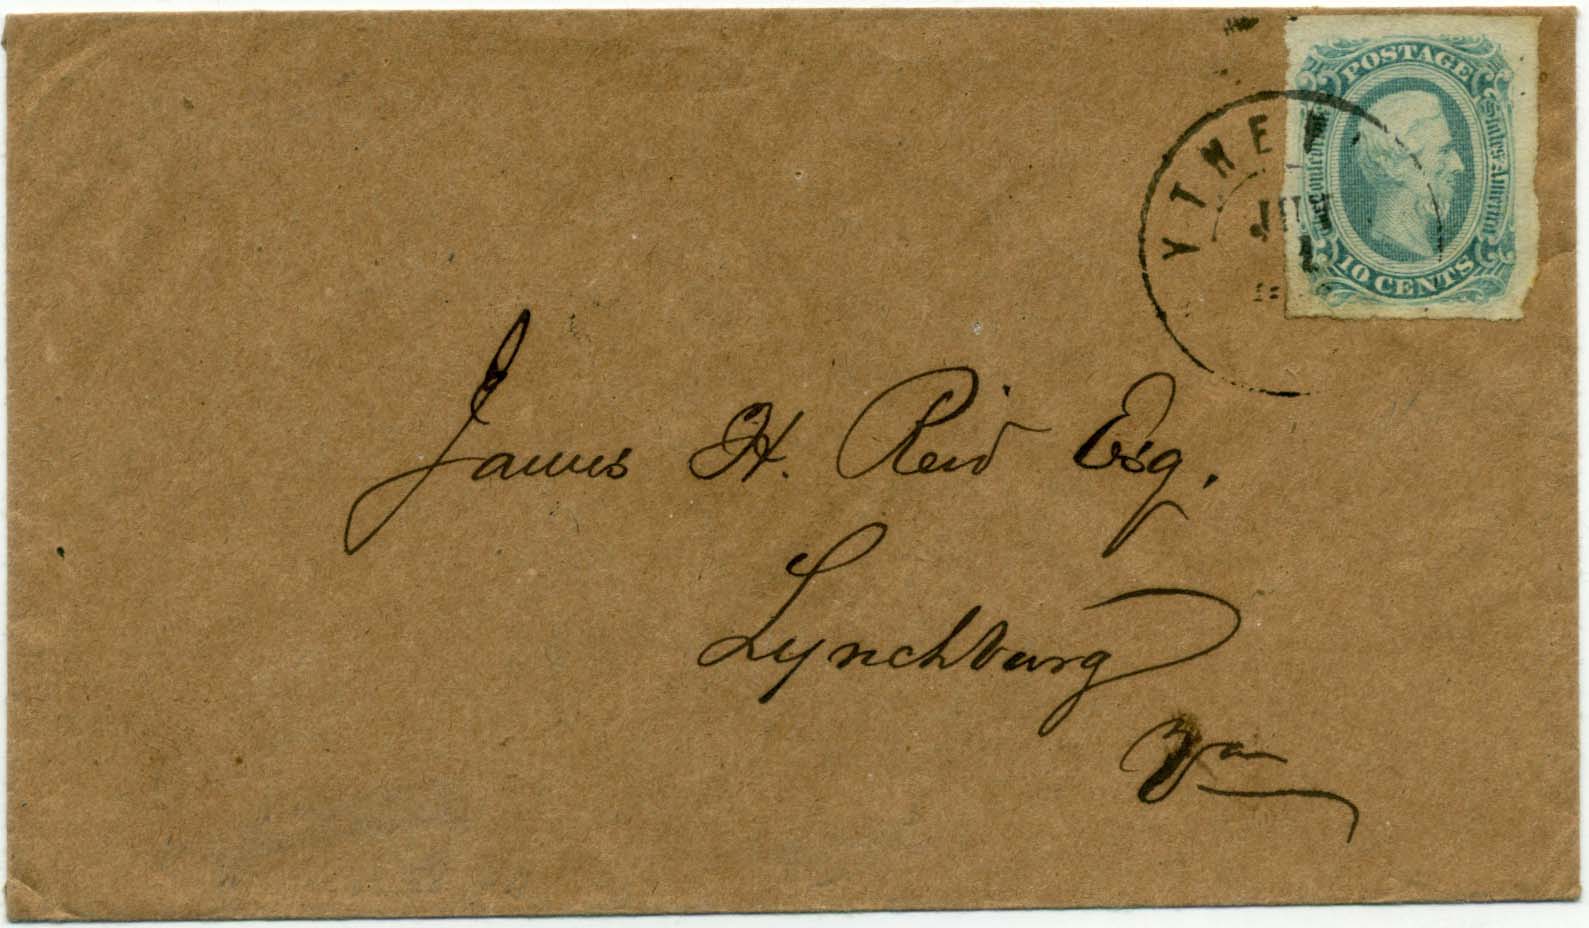 POSTAGE
Confederate States of America
10 CENTS
YTHE
James H. Reid Esq.
Lynchburg
Va